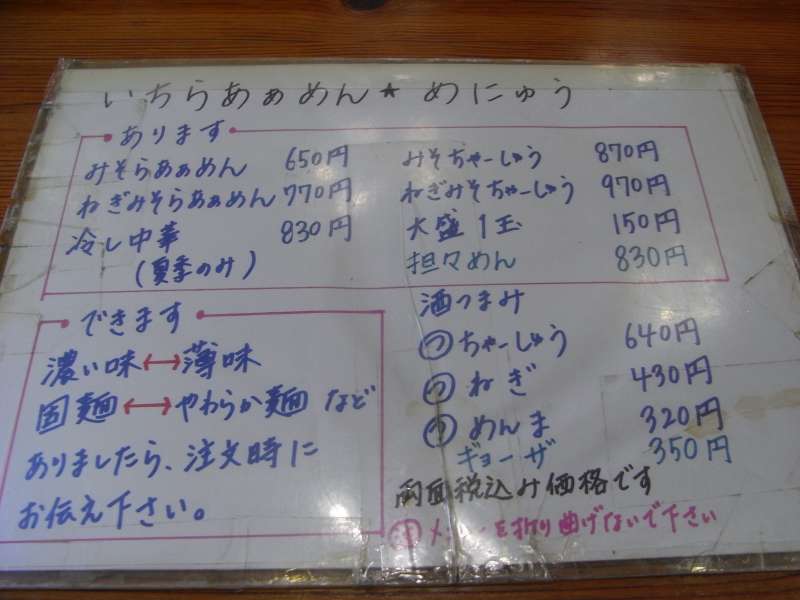 いちらあぁめん★めにゅう
あります
みそらあぁめん 650円
ねぎみそらあぁめん 770円
冷し中華 830円
(夏季のみ)
みそちゃーしゅう 870円
ねぎみそちゃーしゅう 970円
大盛1玉 150円
担々めん 830円
できます
濃い味↔薄味
固麺↔やわらか麺 など
ありましたら、注文時に
お伝え下さい。
酒つまみ
つ ちゃーしゅう 640円
つ ねぎ 430円
つ めんま 320円
ギョーザ 350円
両面税込み価格です
を折り曲げないで下さい